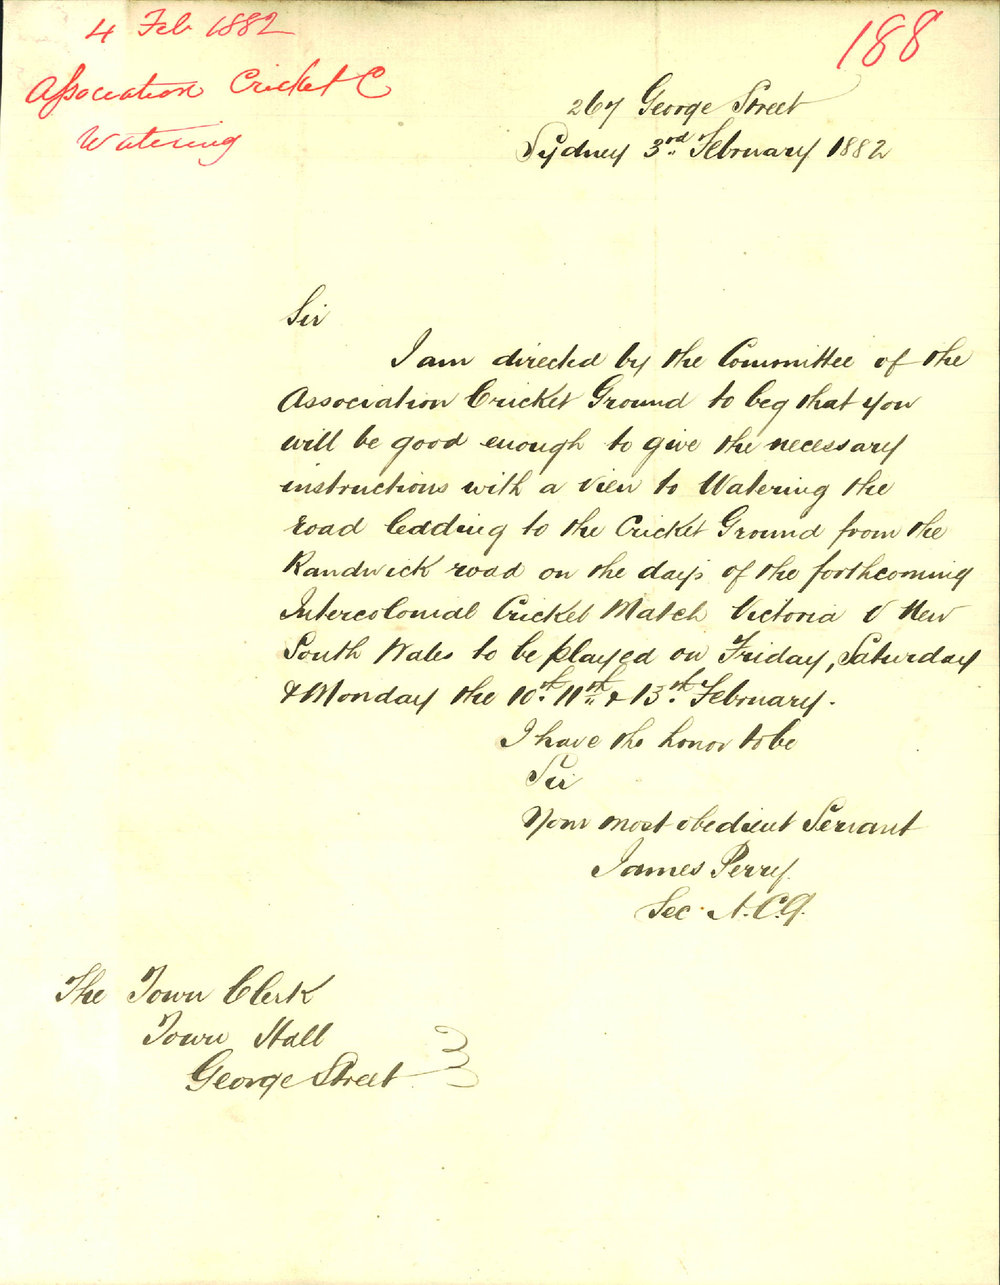 4 Feb 1882
188
Association Cricket C
Watering
267 George Street
Sydney 3rd. February 1882
Sir
I am directed by the Committee of the
Association Cricket Ground to beg that you
will be good enough to give the necessary
instructions with a view to Watering the
road leading to the Cricket Ground from the
Randwick road on the days of the forthcoming
Intercolonial Cricket Match Victoria V New
South Wales to be played on Friday, Saturday
& Monday the 10th. 11th. & 13th. February.
I have the honor to be
Sir
Your most obedient Servant
James Perry.
Sec. A.C.G.
The Town Clerk
Town Hall
George Street